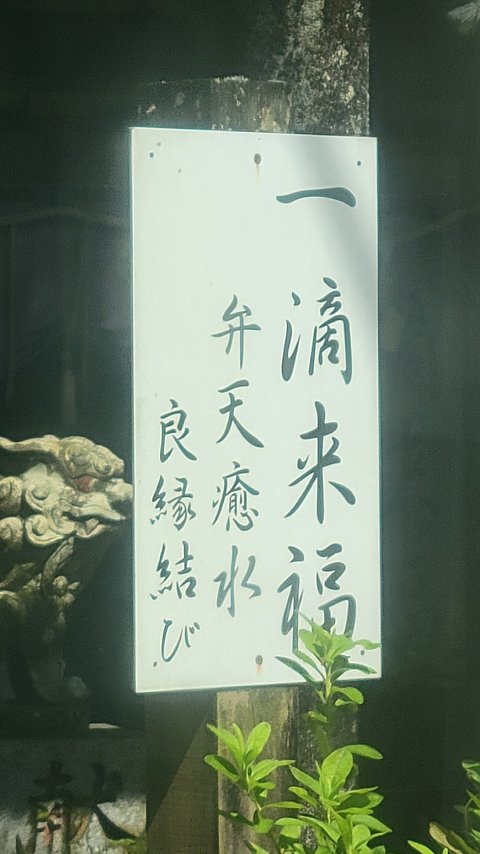 一滴来福
弁天癒水
良縁結び
献